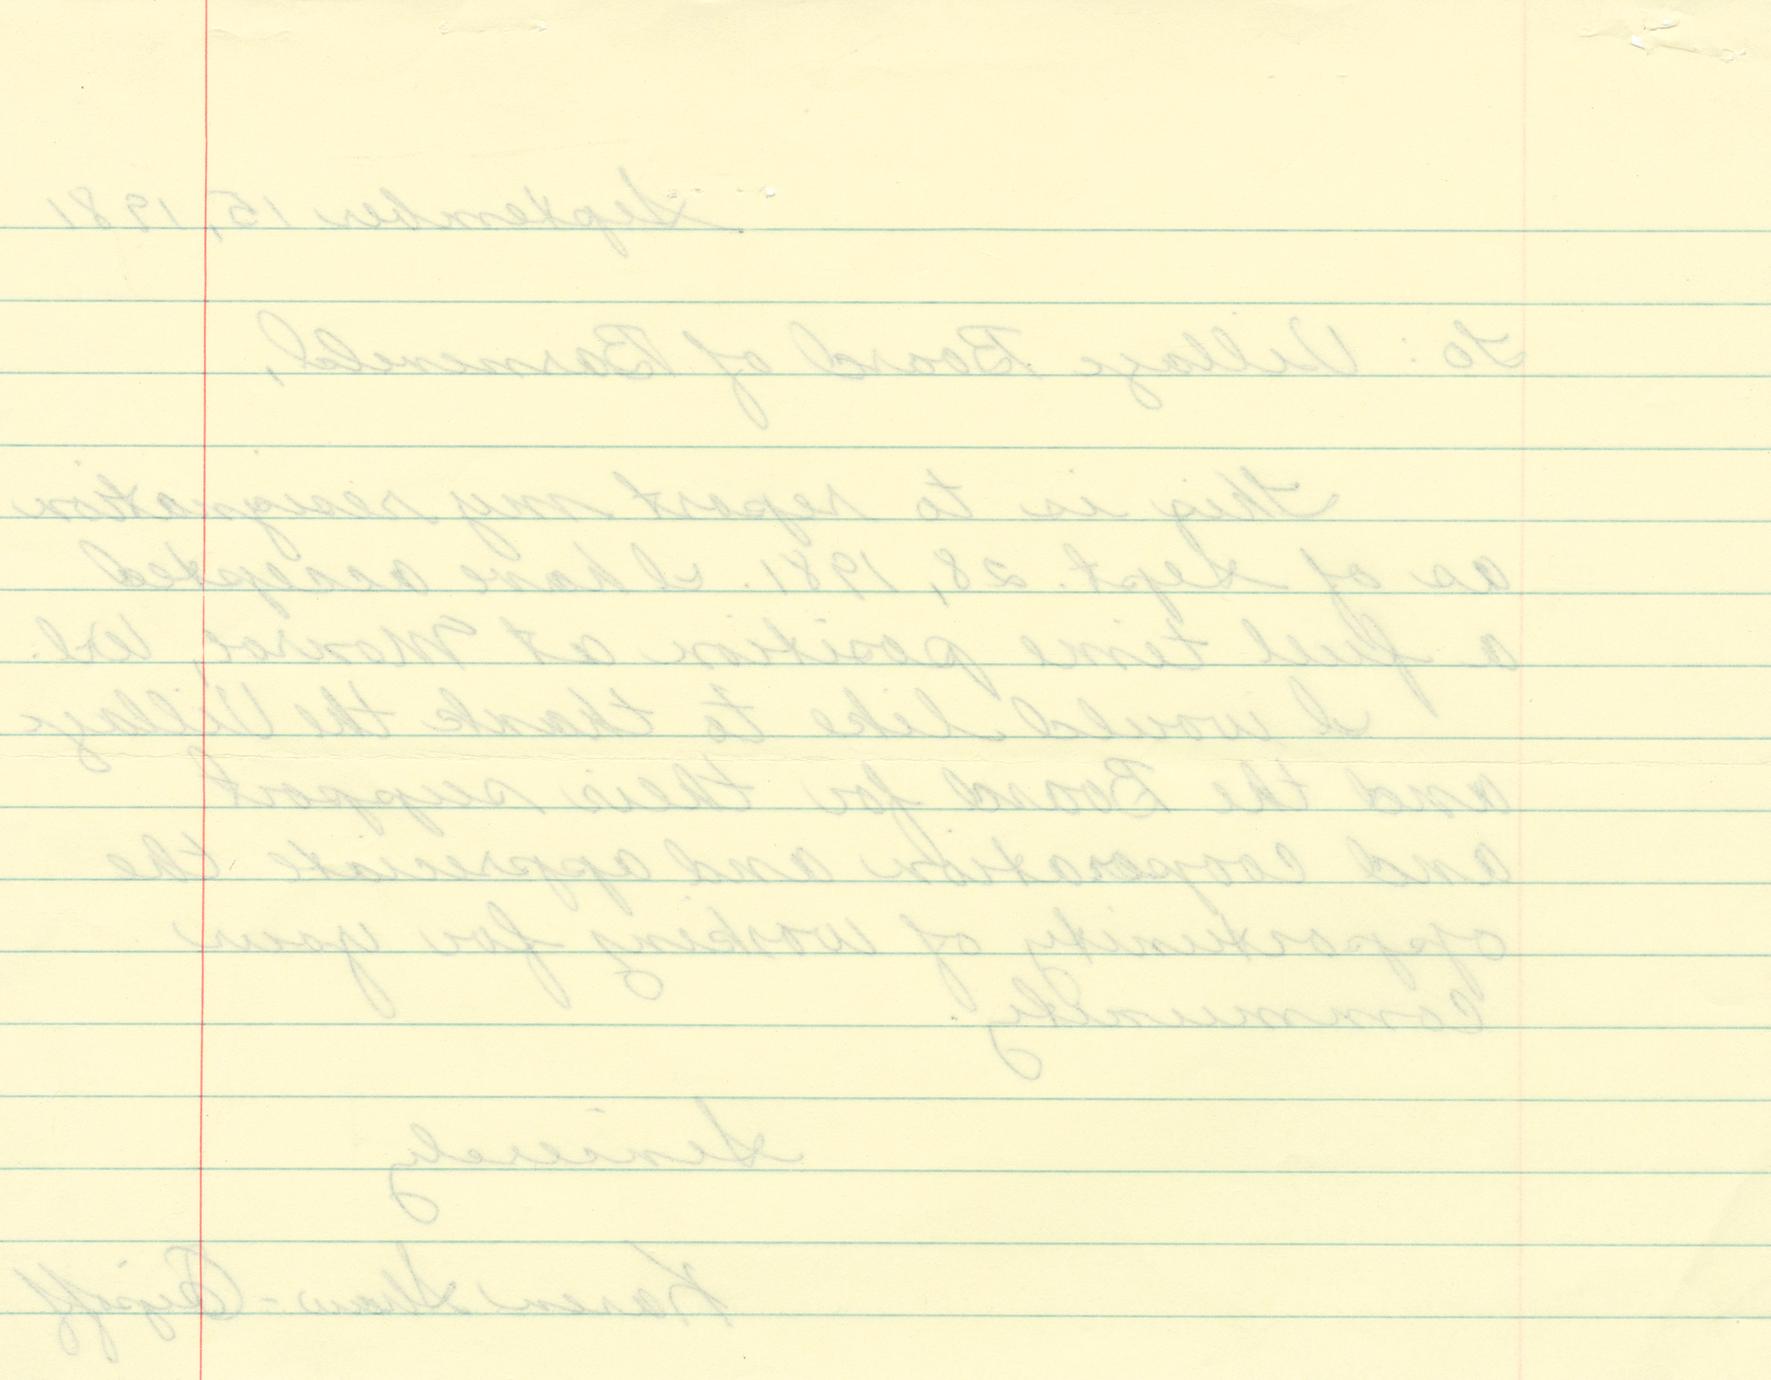 September 15, 1981
To: Village Board of Barneveld,
This is to report my resignation
as of Sept. 28, 1981. I have accepted
a full time position at Monroe, Wi.
I would like to thank the Village
and the Board for their support
and cooperation and appreciate the
opportunity of working for your
Community.
Sincerely
Karen Shaw-